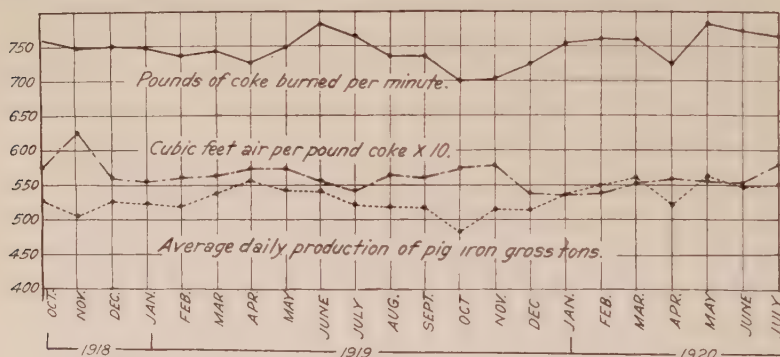 750
700
650
600
550
500
450
400
Pounds of coke burned per minute.
Cubic feet air per pound coke X 10.
Average daily production of pig iron gross tons.
OCT. NOV. DEC. JAN. FEB. MAR APR. MAY JUNE JULY AUG. SEPT. OCT NOV. DEC JAN. FEB. MAR. APR. MAY JUNE JULY
1918 1919 1920